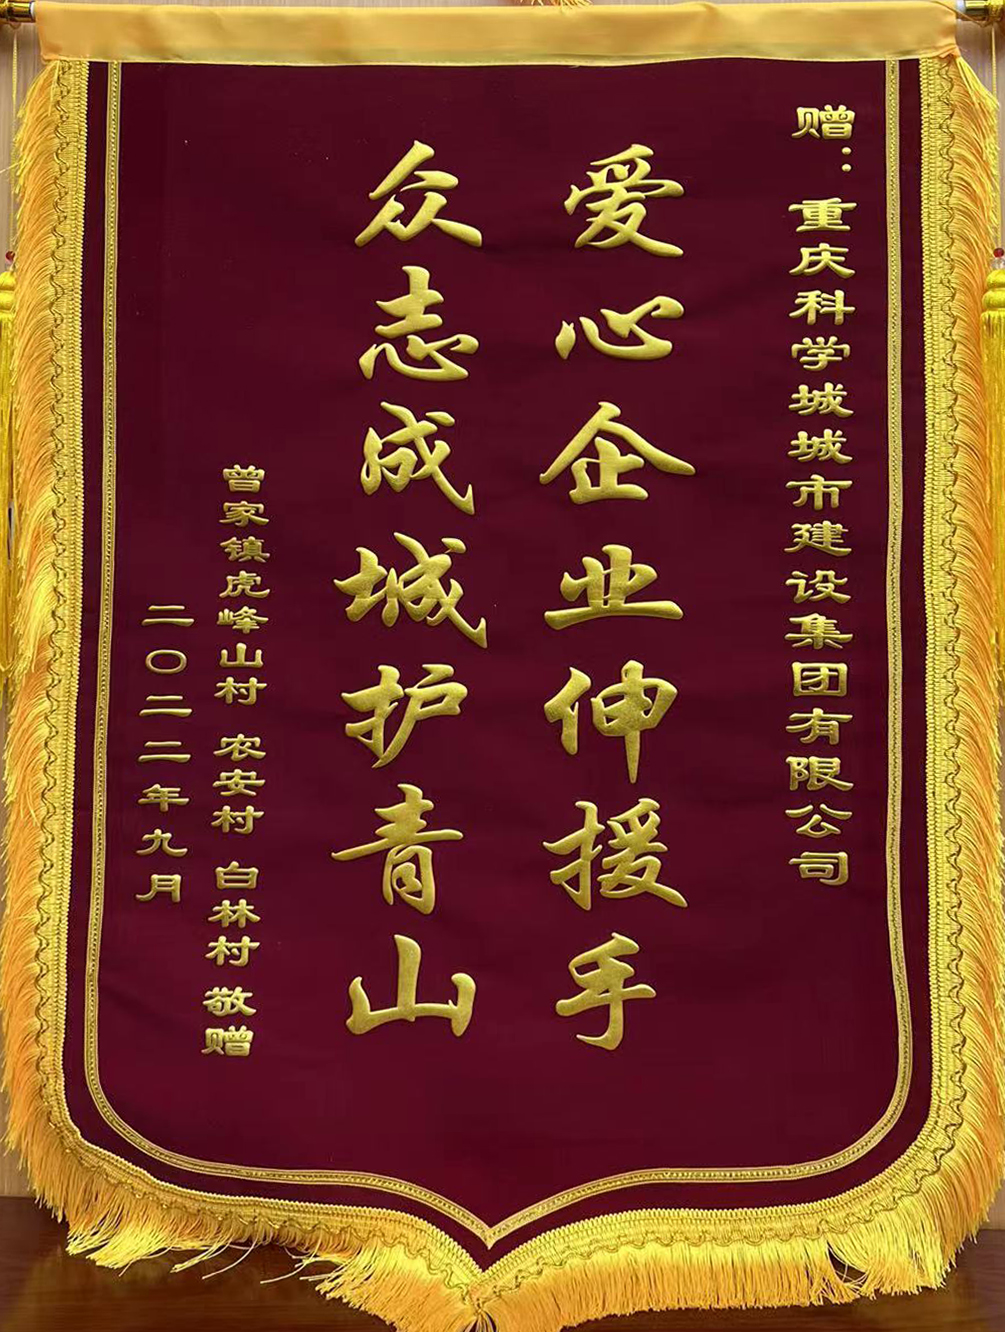 赠：重庆科学城城市建设集团有限公司
爱心企业伸援手
众志成城护青山
曾家镇虎峰山村 农安村 白林村 敬赠
二〇二二年九月